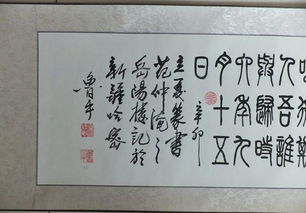 人吾誰
與歸時
六年九
月十五
日
辛卯
立夏篆書
范仲淹之
岳陽樓記於
新疆哈密